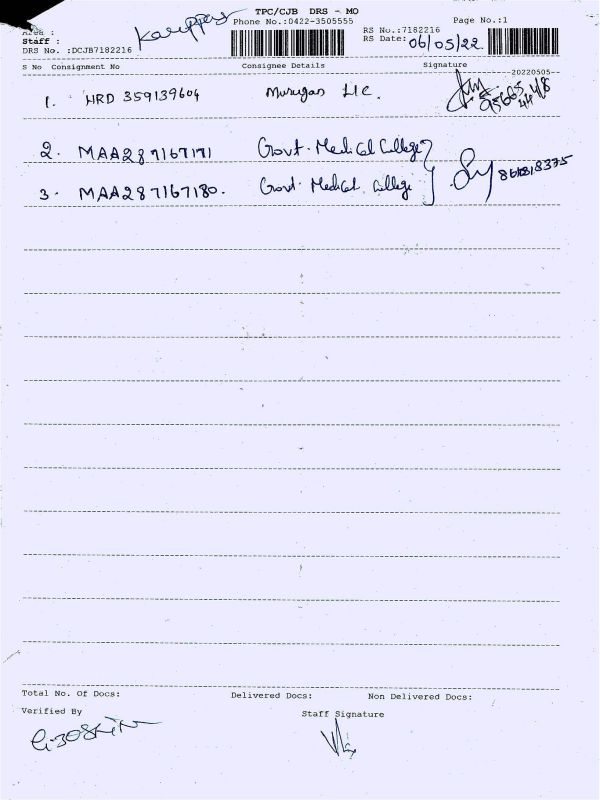 TPC/CJB DRS - MO
Phone No.:0422-3505555 Page No.:1
Area : RS No.:7182216
Staff : RS Date: 06/05/22
DRS No. :DCJB7182216
S No Consignment No Consignee Details Signature
20220505
1. HRD 359139604 Murugan LIC.
2. MAA287167171 Govt. Medical College
3. MAA287167180. Govt. Medical College
Total No. Of Docs: Delivered Docs: Non Delivered Docs:
Verified By Staff Signature